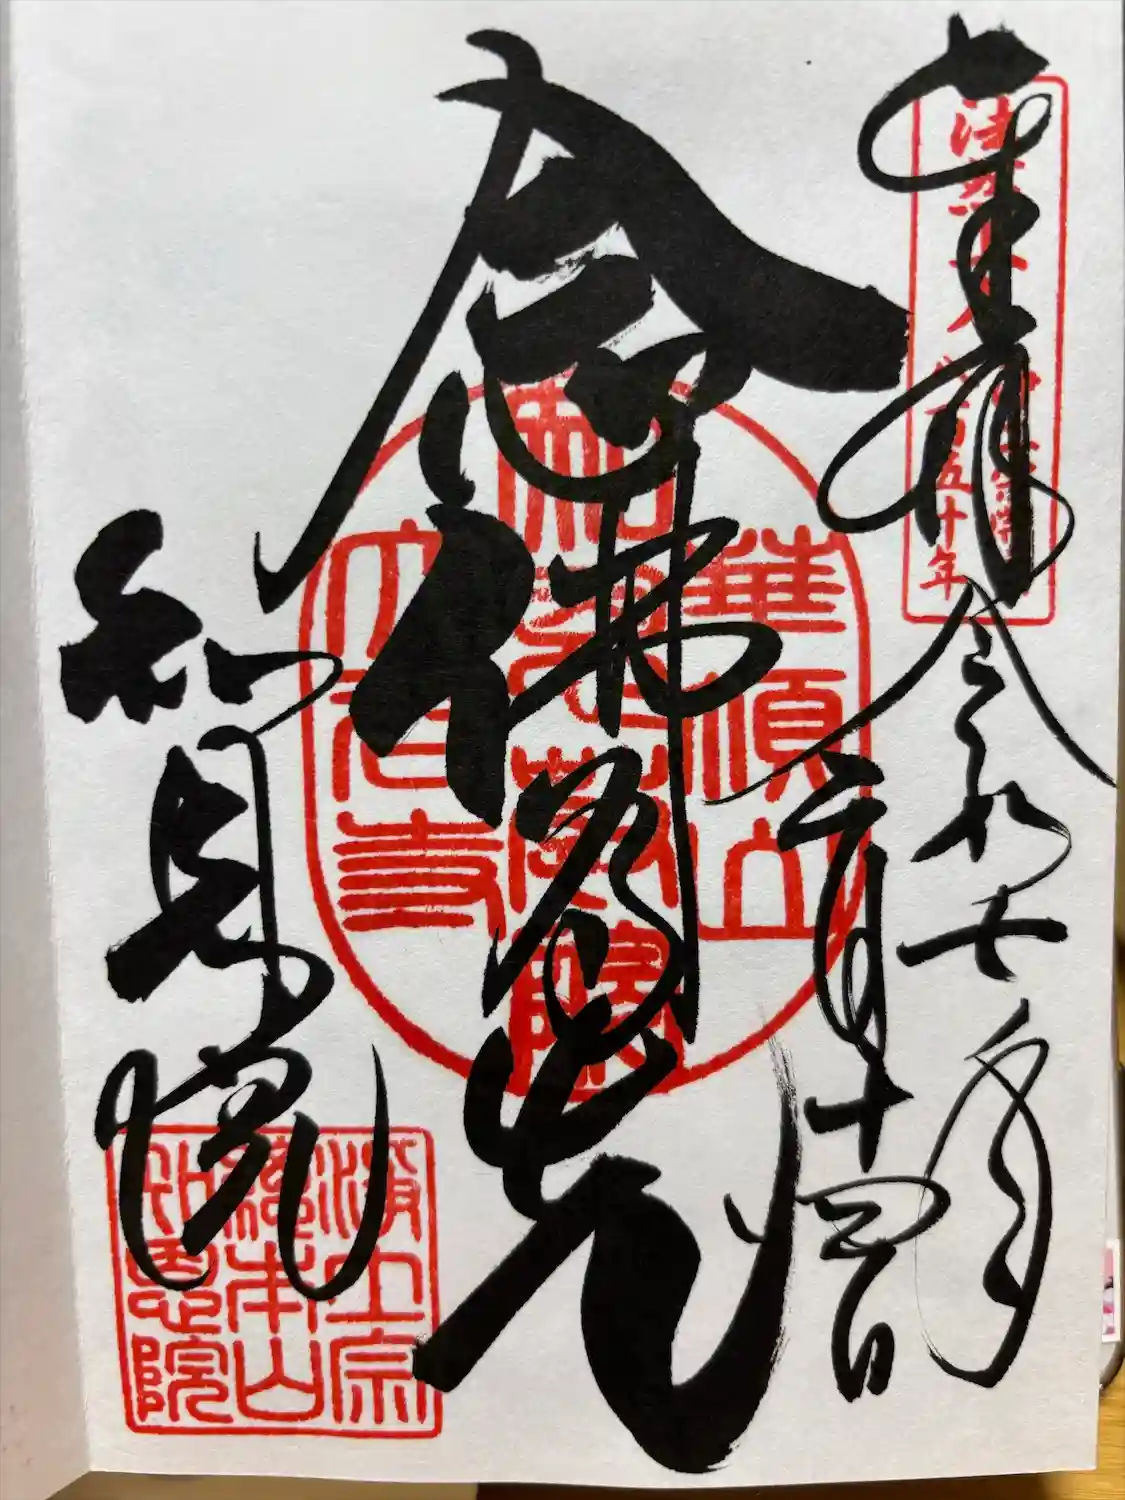 奉拝
令和七年
二月十四日
念佛為先
知恩院
法然上人
八百五十年
華頂山
知恩教院
大谷寺
浄土宗
總本山
知恩院